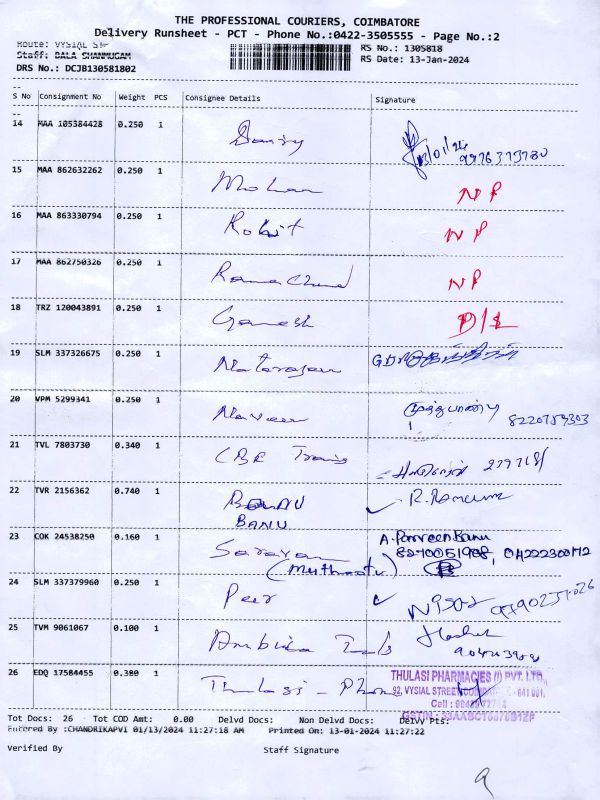 THE PROFESSIONAL COURIERS, COIMBATORE
Delivery Runsheet - PCT - Phone No.:0422-3505555 - Page No.:2
Route: VYSIAL ST
RS No.: 1305818
Staff: BALA SHANMUGAM
RS Date: 13-Jan-2024
DRS No.: DCJB130581802
S No Consignment No Weight PCS Consignee Details Signature
14 MAA 105384428 0.250 1 Sanjy
15 MAA 862632262 0.250 1 Mohan NP
16 MAA 863330794 0.250 1 Rohit NP
17 MAA 862750326 0.250 1 Rama Chand NP
18 TRZ 120043891 0.250 1 Ganesh D/L
19 SLM 337326675 0.250 1 Natarajan
20 VPM 5299341 0.250 1 Naveen முத்துபாண்டி
8220759303
21 TVL 7803730 0.340 1 CBE
22 TVR 2156362 0.740 1 R.
BANU
23 COK 24538250 0.160 1 Saravan A. Parveen Banu
(Muthootu)
24 SLM 337379960 0.250 1 Peer
25 TVM 9061067 0.100 1 Ambika
26 EDQ 17584455 0.380 1 Thulasi - Pharma
THULASI PHARMACIES (I) PVT. LTD.,
92, VYSIAL STREET, - 641 001.
Cell :
GSTIN :
Tot Docs: 26 Tot COD Amt: 0.00 Delvd Docs: Non Delvd Docs: Delvy Pts:
Entered By :CHANDRIKAPVI 01/13/2024 11:27:18 AM Printed On: 13-01-2024 11:27:22
Verified By Staff Signature